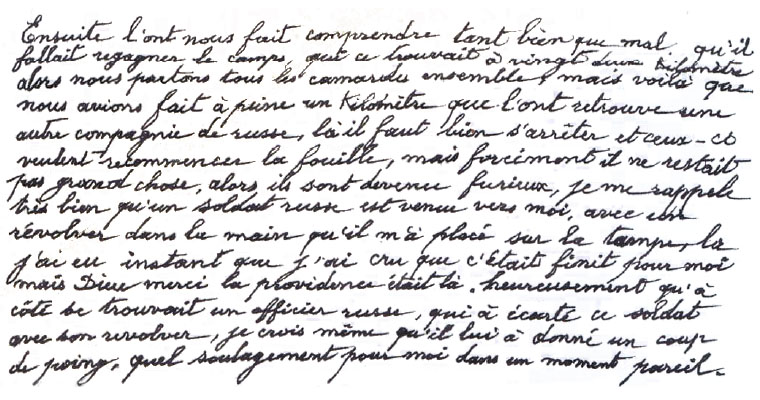 Ensuite l'ont nous fait comprendre tant bien que mal, qu'il
fallait regagner le camps, qui ce trouvait à vingt deux Kilomètre
alors nous partons tous les camarades ensemble, mais voilà que
nous avions fait à peine un Kilomètre que l'ont retrouve une
autre compagnie de russe, là il faut bien s'arrêter et ceux-ci
veulent recommencer la fouille, mais forcément il ne restait
pas grand chose, alors ils sont devenu furieux, je me rappele
très bien qu'un soldat russe est venu vers moi, avec un
révolver dans la main qu'il m'à placé sur la tampe, la
j'ai eu instant que j'ai cru que c'était finit pour moi
mais Dieu merci la providence était là. heureusement qu'à
côté se trouvait un officier russe, qui à écarté ce soldat
avec son revolver, je crois même qu'il lui à donné un coup
de poing, quel soulagement pour moi dans un moment pareil.